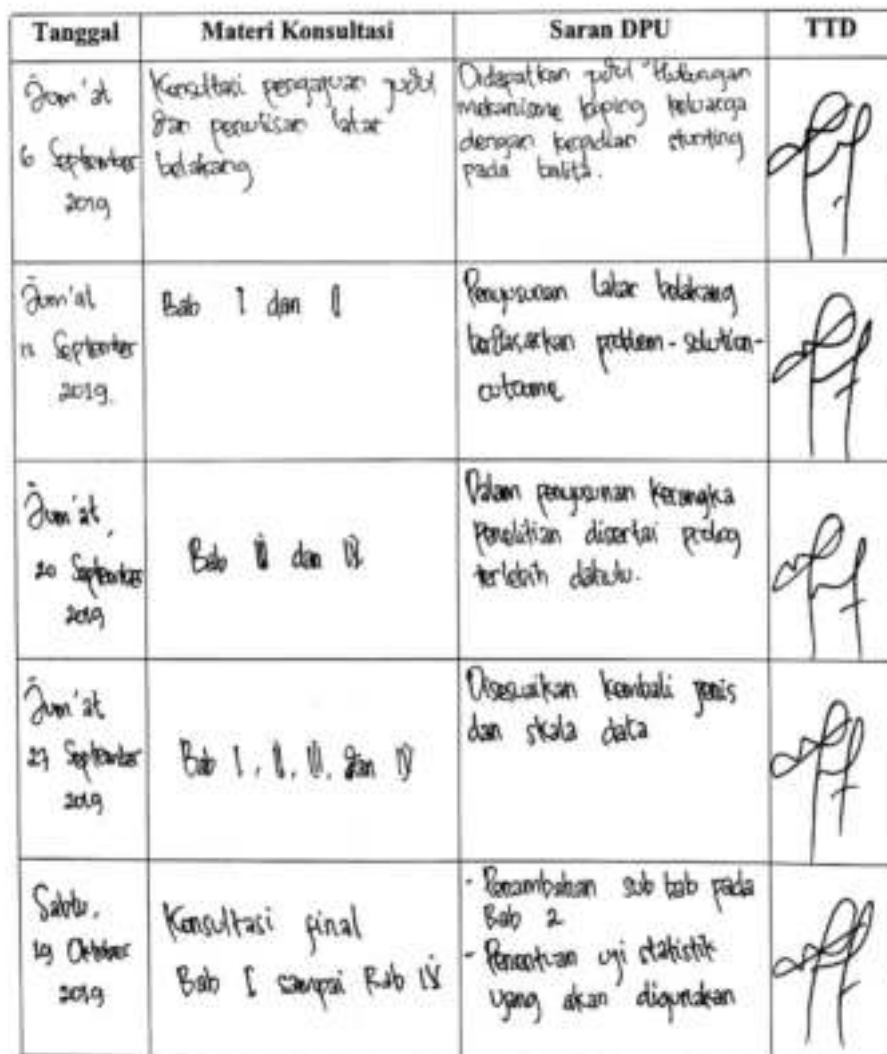 Tanggal Materi Konsultasi Saran DPU TTD
Jum'at
6 September
2019
Konsultasi pengajuan judul
dan penulisan latar
belakang
Didapatkan judul "Hubungan
mekanisme koping keluarga
dengan kejadian stunting
pada balita.
Jum'at
13 September
2019.
Bab I dan II
Penyusunan latar belakang
berdasarkan problem-solution-
outcome
Jum'at,
20 September
2019
Bab III dan IV
Dalam penyusunan kerangka
Penelitian disertai prolog
terlebih dahulu.
Jum'at
27 September
2019
Bab I, II, III, dan IV
Disesuaikan kembali jenis
dan skala data
Sabtu,
19 Oktober
2019
Konsultasi final
Bab I sampai Bab IV
- Penambahan sub bab pada
Bab 2
- Penentuan uji statistik
yang akan digunakan